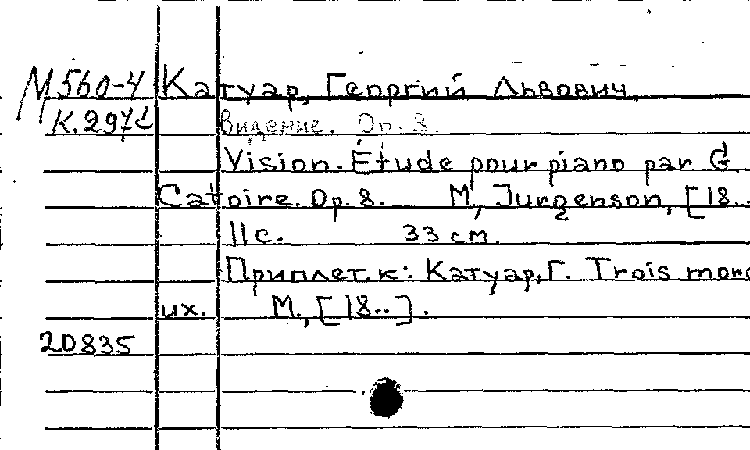 М560-4 Катуар, Георгий Львович.
К.297
Видение. Op. 8.
Vision. Étude pour piano par G.
Catoire. Op. 8. M, Jurgenson, [18..
11 с. 33 см.
Приплет. к: Катуар, Г. Trois morc
их. М., [18..].
20835